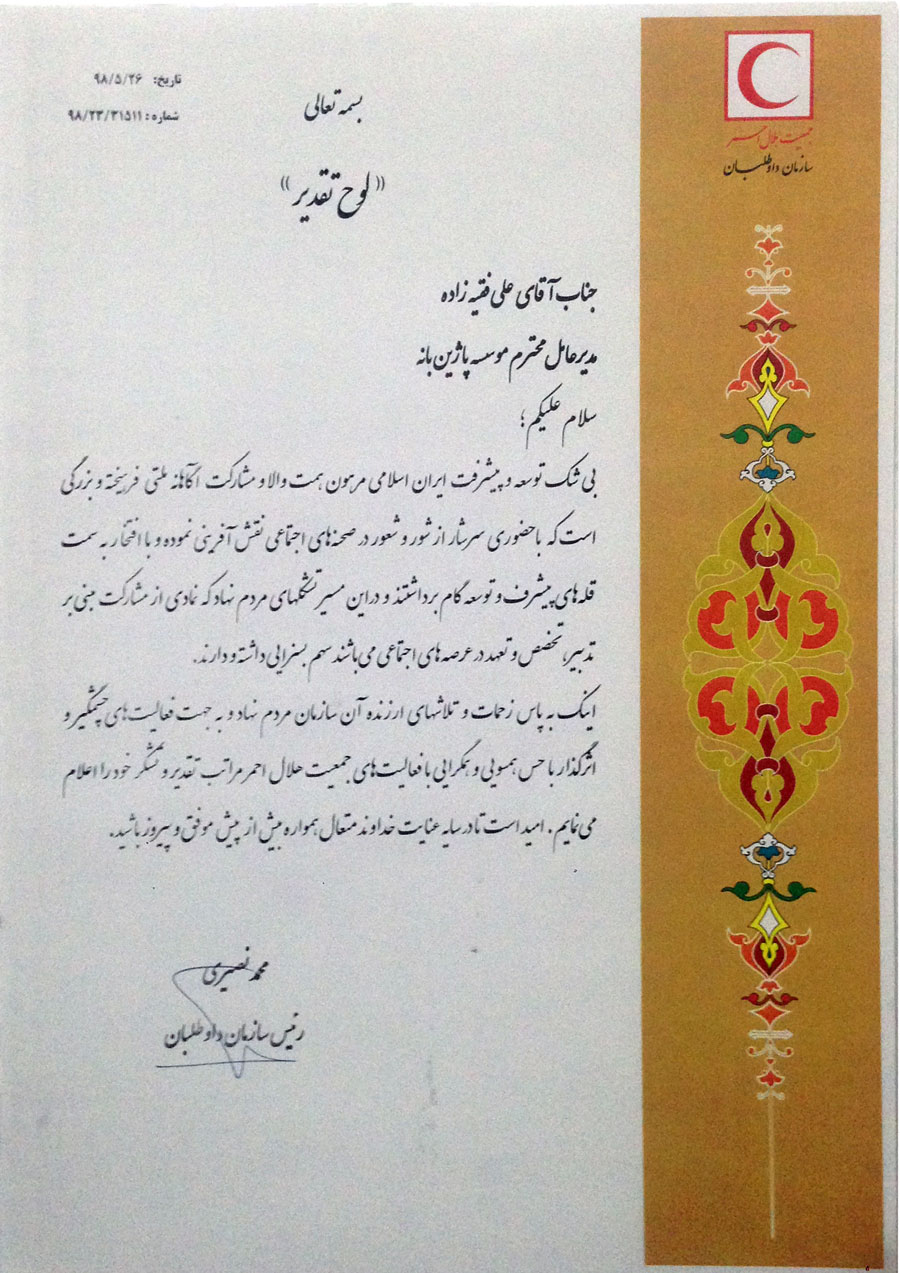 جمعیت هلال احمر
سازمان داوطلبان
تاریخ: ۹۸/۵/۲۶
شماره: ۹۸/۲۳/۳۱۵۱۱
بسمه تعالی
«لوح تقدیر»
جناب آقای علی فقیه زاده
مدیرعامل محترم موسسه پاژین بانه
سلام علیکم؛
بی شک توسعه و پیشرفت ایران اسلامی مرهون همت والا و مشارکت آگاهانه ملتی فرهیخته و بزرگی
است که با حضوری سرشار از شور و شعور در صحنه های اجتماعی نقش آفرینی نموده و با افتخار به سمت
قله های پیشرف و توسعه گام برداشتند و در این مسیر تشکلهای مردم نهاد که نمادی از مشارکت مبنی بر
تدبیر، تخصص و تعهد در عرصه های اجتماعی می باشند سهم بسزایی داشته و دارند.
اینک به پاس زحمات و تلاشهای ارزنده آن سازمان مردم نهاد و به جهت فعالیت های چشمگیر و
اثرگذار با حس همسویی و همگرایی با فعالیت های جمعیت هلال احمر مراتب تقدیر و تشکر خود را اعلام
می نمایم. امید است تا در سایه عنایت خداوند متعال همواره بیش از پیش موفق و پیروز باشید.
محمد نصیری
رئیس سازمان داوطلبان